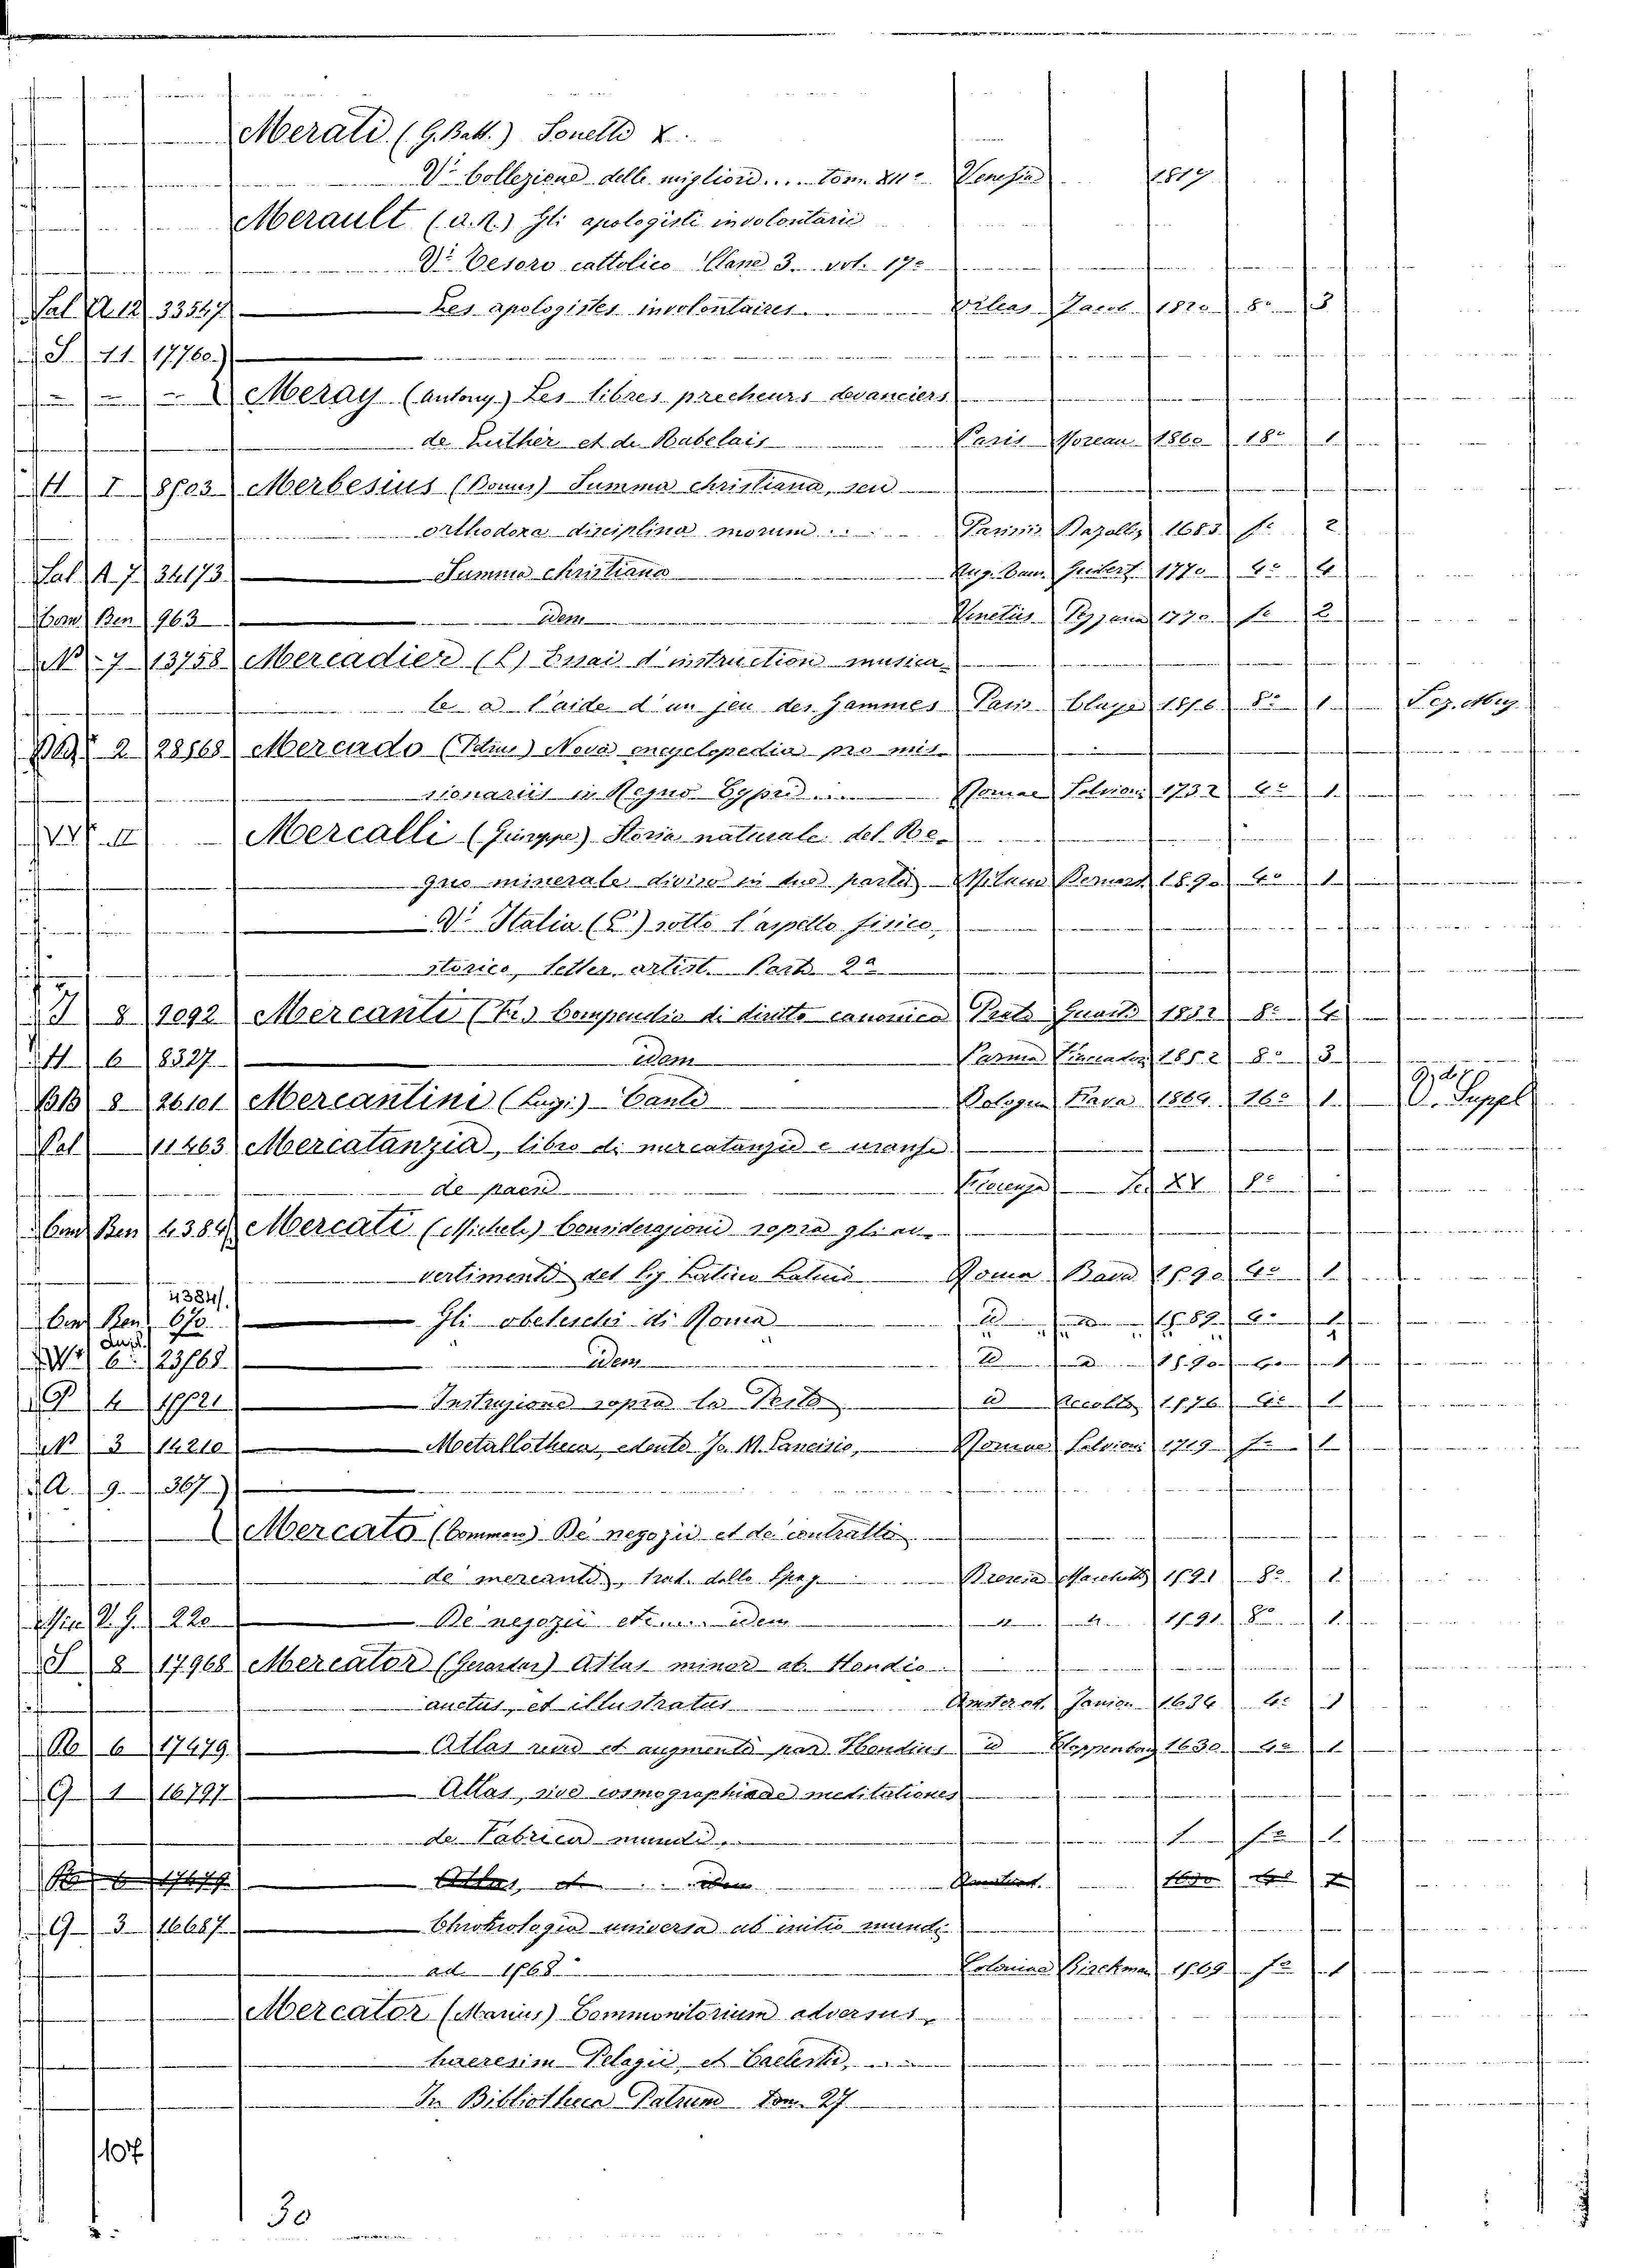 Merati (G. Batt.) Sonetti X
V. Collezione delle migliori.... Tom. XII° Venezia 1819
Merault (A. R.) Gli apologisti involontarii
V. Tesoro cattolico Clas 3. vol. 17°
Sal A. 12 33547 Les apologistes involontaires Jacob 1820 8° 3
S. 11. 17760.
Meray (Antony.) Les libres precheurs devanciers
de Luther et de Rabelais Paris Moreau 1860 18° 1
H I 8503 Merbesius (Bonus) Summa christiana, seu
orthodoxa disciplina morum ... Parisiis Dezallier 1683 f° 2
Sal A. 7 34173 Summa christiana Aug. 1770 4° 4
Ben 963 idem Venetiis Pezzana 1770 f° 2
N 7 13758 Mercadier (L) Essai d'instruction musica-
le a l'aide d'un jeu des gammes Paris Claye 1856 8° 1 Sez. Mus.
2 28568 Mercado (Petrus) Nova encyclopedia pro mis-
sionariis in Regno Cypri ... Romae Salvioni 1732 4° 1
VV II Mercalli (Giuseppe) Storia naturale del Re-
gno minerale diviso in due parti Milano Bernard 1890 4° 1
V. Italia (L') sotto l'aspetto fisico,
storico, letter. artist. Part. 2ª
8 1092 Mercanti Compendio di diritto canonico Prato Guasti 1832 8° 4
H 6 8327 idem Parma Fiaccadori 1852 8° 3
BB 8 26101 Mercantini (Luigi) Canti Bologna Fava 1864 16° 1 V. Suppl
Pal 11463 Mercatanzia, libro di mercatanzie e usanze
de paesi Firenze Sec XV 8°
Ben 4384 Mercati (Michele) Considerazioni sopra gli av-
vertimenti del Sig Latino Latini Roma Basa 1590 4° 1
4384/.
Ben 670. Gli obelischi di Roma id 1589 4° 1
6 23568 idem id 1590 4° 1
P 4 15521 Instruzione sopra la Peste id Accolto 1576 4° 1
N 3 14210 Metallotheca, edente Jo. M. Lancisio, Romae Salvioni 1719 f° 1
A. 9. 367
Mercato (Tommaso) De' negozii et de' contratti
de' mercanti, trat. dello Spag. Brescia Marchetti 1591 8° 1
V. G. 220 De' negozii et ... idem 1591 8° 1
S 8 17968 Mercator (Gerardus) Atlas minor ab Hondio
auctus, et illustratus Amsterod. Janson 1634 4° 1
6 17479 Atlas reud et augmenté par Hondius id Cloppenburg 1630 4° 1
G 1 16797 Atlas, sive cosmographicae meditationes
de fabrica mundi 1
6 17479 Atlas, et ... idem 1630
G 3 16687 Chronologia universa ab initio mundi
ad 1568 Coloniae Birckman 1569 f° 1
Mercator (Marius) Commonitorium adversus
haeresim Pelagii, et Caelestii,
In Bibliotheca Patrum tom. 27
107
30